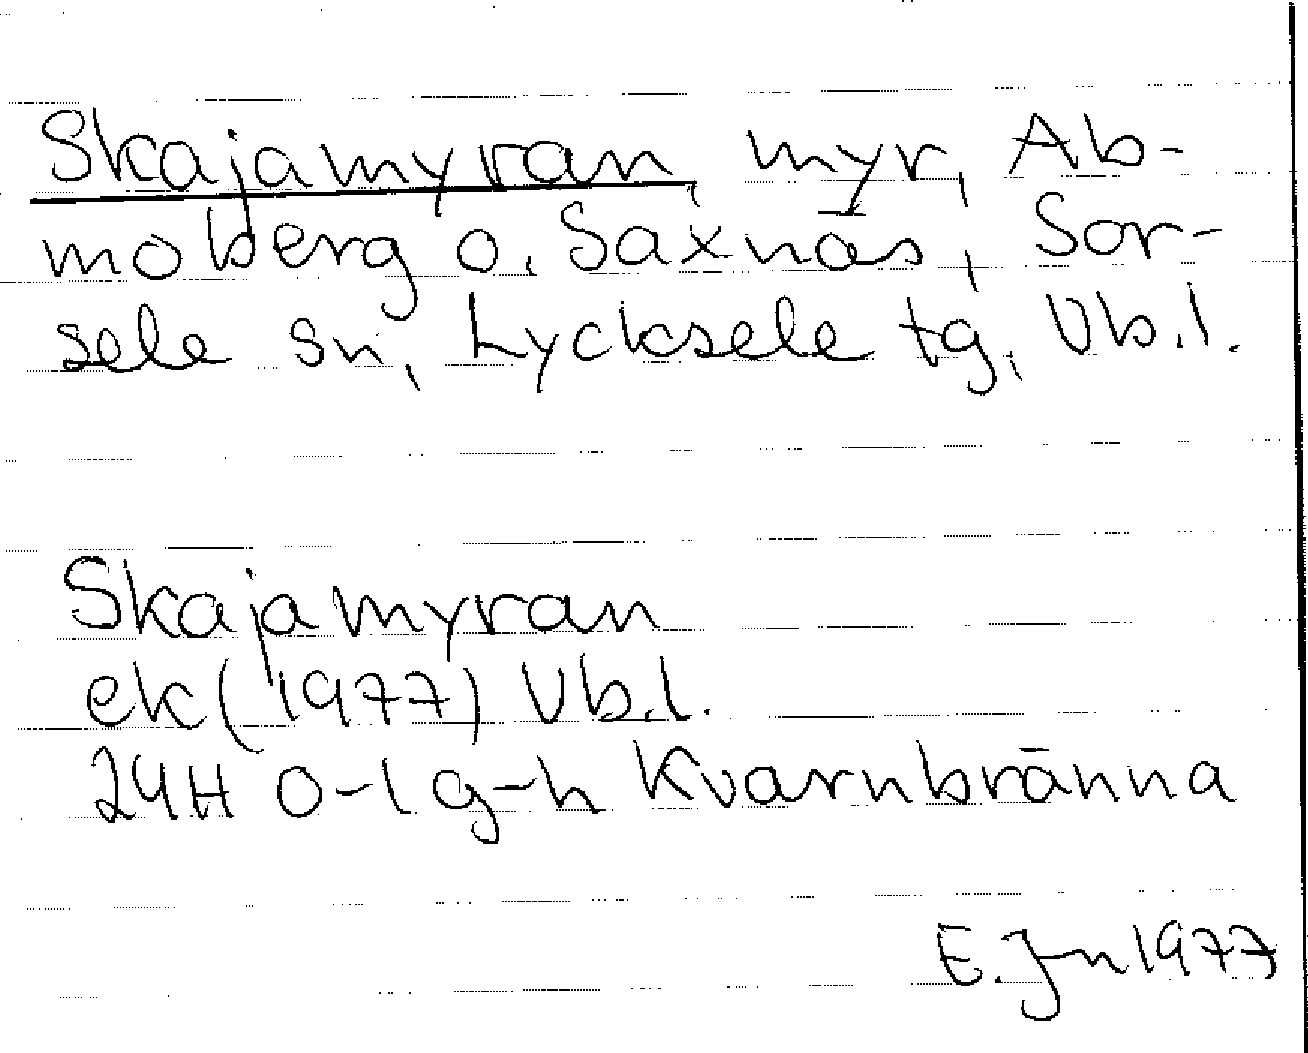 Skajamyran, myr, Ab-
moberg o. Saxnäs, Sor-
sele sn, Lycksele tg, Vb.l.
Skajamyran
ek (1977) Vb.l.
24H 0-1 g-h Kvarnbränna
E. Jn 1977